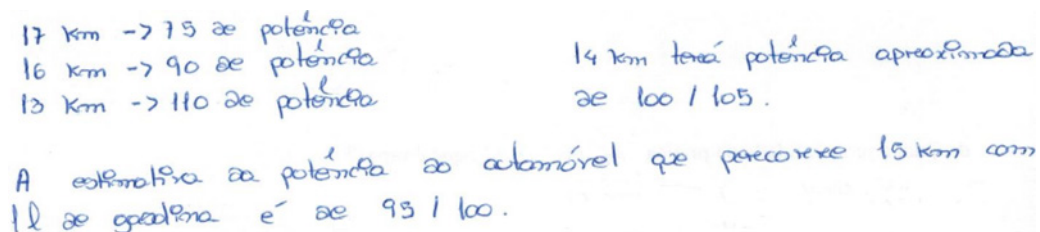 17 Km -> 75 de potência
16 Km -> 90 de potência
13 Km -> 110 de potência
14 Km terá potência aproximada
de 100 / 105.
A estimativa da potência do automóvel que percorre 15 km com
1l de gasolina é de 95 / 100.